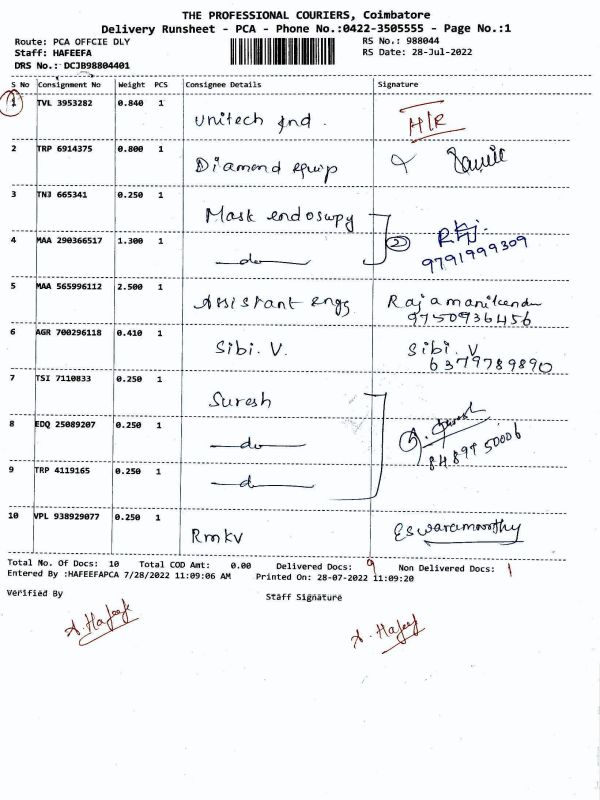 THE PROFESSIONAL COURIERS, Coimbatore
Delivery Runsheet - PCA - Phone No.:0422-3505555 - Page No.:1
Route: PCA OFFCIE DLY RS No.: 988044
Staff: HAFEEFA RS Date: 28-Jul-2022
DRS No.: DCJB98804401
S No Consignment No Weight PCS Consignee Details Signature
1 TVL 3953282 0.840 1 Unitech Ind. H/R
2 TRP 6914375 0.800 1 Diamond equip
3 TNJ 665341 0.250 1 Mask endoscopy
4 MAA 290366517 1.300 1 do 2
9791999309
5 MAA 565996112 2.500 1 Assistant engg Rajamanikandn
9750936456
6 AGR 700296118 0.410 1 Sibi. V. Sibi. V
6379789890
7 TSI 7110833 0.250 1 Suresh
8 EDQ 25089207 0.250 1 do
9 TRP 4119165 0.250 1 do
10 VPL 938929077 0.250 1 Rmkv Eswaramoorthy
Total No. Of Docs: 10 Total COD Amt: 0.00 Delivered Docs: 9 Non Delivered Docs: 1
Entered By :HAFEEFAPCA 7/28/2022 11:09:06 AM Printed On: 28-07-2022 11:09:20
Verified By Staff Signature
A. Hafeef A. Hafeef